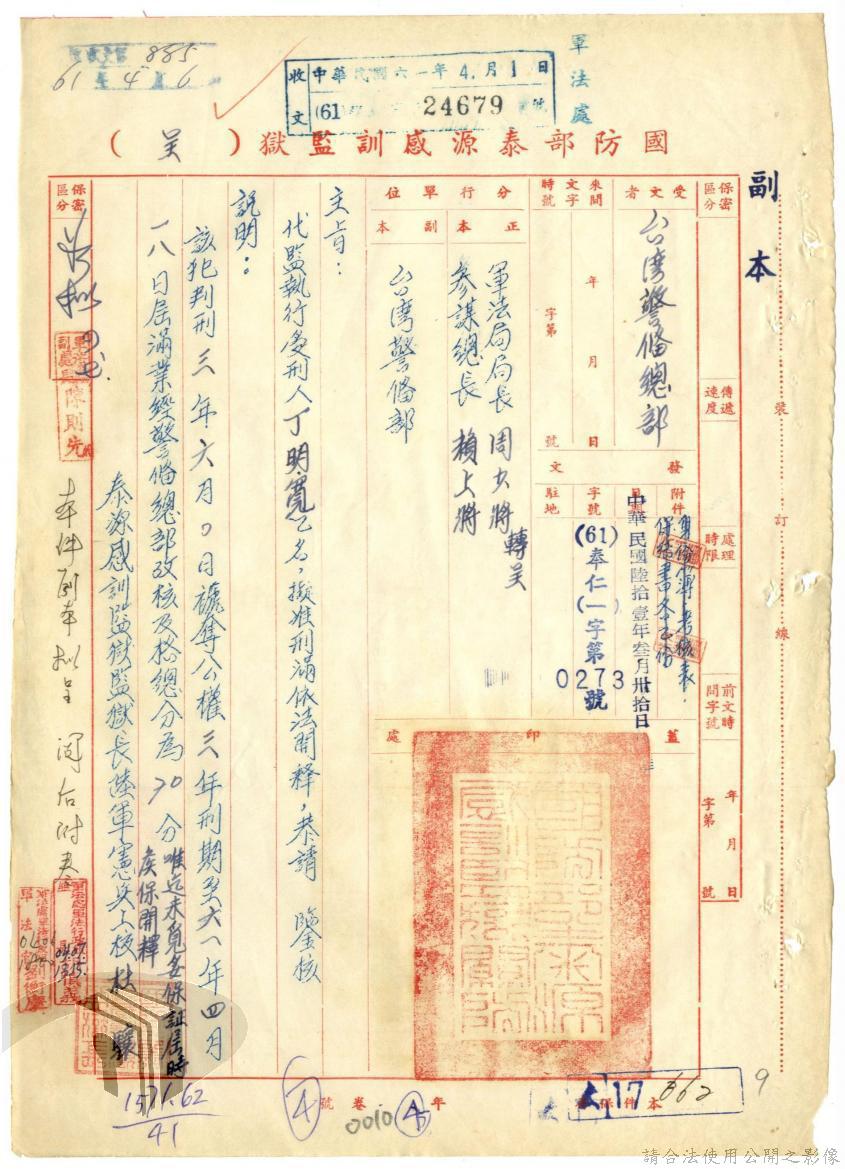 副本
軍法處
收文
中華民國六一年4月1日
(61)
24679
號
885
61年4月6
國防部泰源感訓監獄(呈)
保密
區分
受文者
台湾警備總部
來文
時間
字號
年
月
日
字第
號
分行單位
正本
軍法局局長 周少將
參謀總長 賴上將
轉呈
副本
台湾警備部
傳遞
速度
處理
時限
前文時
間字號
年
月
日
字第
號
發文
附件
保結書各乙份
日期
中華民國陸拾壹年叁月卅拾日
字號
(61)奉仁(一字第
0273號
駐地
蓋印處
主旨：
代監執行受刑人丁明寬乙名，擬准刑滿依法開釋，恭請 鑒核
說明：
該犯判刑三年六月0日褫奪公權三年刑期至六一年四月
一八日屆滿業經警備總部攷核及格總分為70分
唯迄未覓妥保証屆時
俟保開釋
泰源感訓監獄監獄長陸軍憲兵上校杜
保密
區分
軍法處
副處長
陳則先
本件副本拟呈 閱后附卷
裝
訂
線
1571.62
41
號
卷
年
0010
4
17
662
本件保
9
請合法使用公開之影像